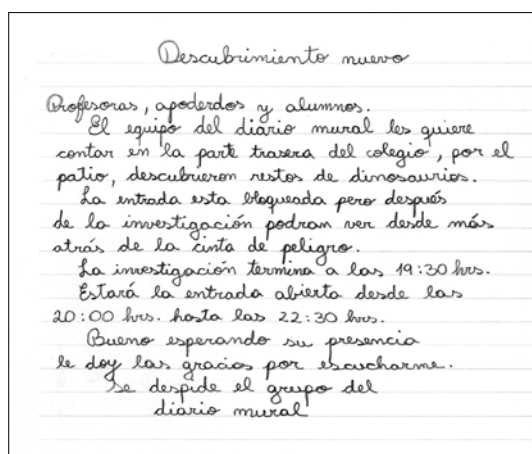 Descubrimiento nuevo
Profesoras, apoderdos y alumnos.
El equipo del diario mural les quiere
contar en la parte trasera del colegio, por el
patio, descubrieron restos de dinosaurios.
La entrada esta bloqueada pero después
de la investigación podran ver desde más
atrás de la cinta de peligro.
La investigación termina a las 19:30 hrs.
Estará la entrada abierta desde las
20:00 hrs. hasta las 22:30 hrs.
Bueno esperando su presencia
le doy las gracias por escucharme.
Se despide el grupo del
diario mural